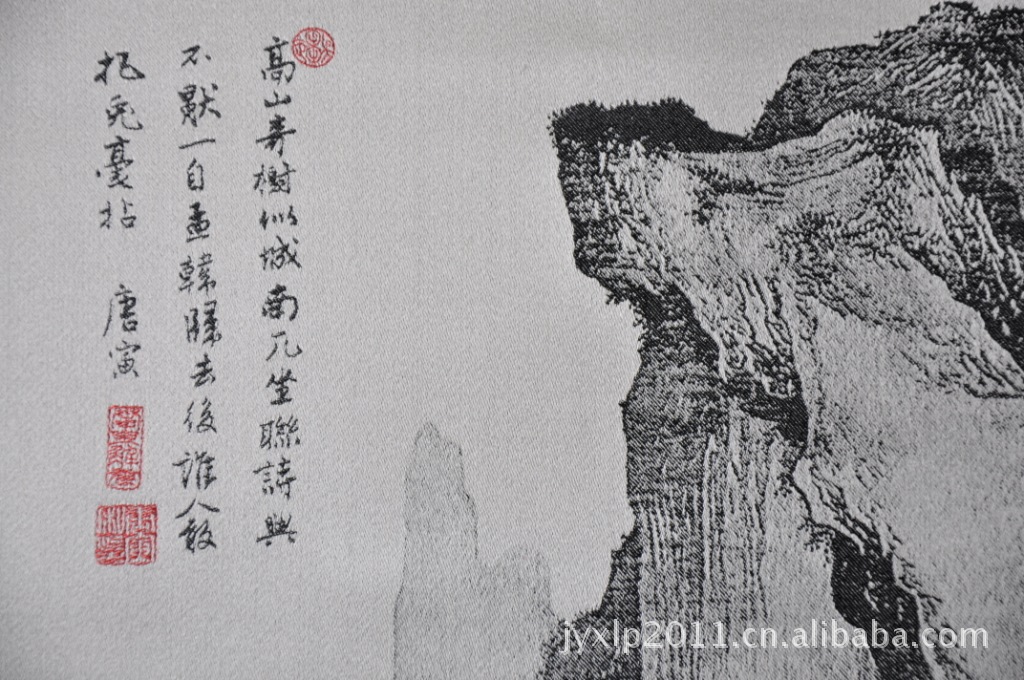 高山奇樹似城南兀坐聯詩興
不猒一自孟韓歸去後誰人敢
把兔毫拈 唐寅
jyxlp2011.cn.alibaba.com